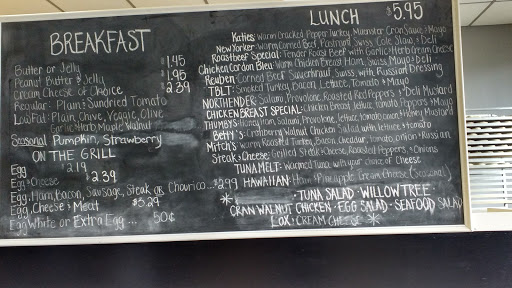 BREAKFAST
Butter or Jelly 1.45
Peanut Butter & Jelly 1.95
Cream Cheese of Choice 2.39
Regular: Plain & Sundried Tomato
LowFat: Plain, Chive, Veggie, Olive
Garlic Herb, Maple Walnut
Seasonal Pumpkin, Strawberry
ON THE GRILL
Egg 2.19
Egg & Cheese 2.39
Egg, Ham, Bacon, Sausage, Steak OR Chourico... $2.99
Egg, Cheese & Meat $3.29
Egg White or Extra Egg ... 50¢
LUNCH $5.95
Katies: Warm Cracked Pepper Turkey, Muenster, Cran Sauce & Mayo
New Yorker Warm Corned Beef, Pastrami, Swiss, Cole Slaw, & Deli
Roastbeef Special: Tender Roast Beef with Garlic Herb Cream Cheese
Chicken Cordon Bleu Warm Chicken Breast, Ham, Swiss, Mayo & Deli
Reuben Corned Beef, Sauerkraut, Swiss, with Russian Dressing
TBLT: Smoked Turkey, Bacon, Lettuce, Tomato & Mayo
NORTHENDER Salami, Provolone, Roasted Red Peppers & Deli Mustard
CHICKEN BREAST SPECIAL: Chicken Breast, lettuce, tomato, Peppers & Mayo
THUMBY'S: Honey Ham, Salami, Provolone, lettuce, tomato, onion & Honey Mustard
Betty's: Cranberry Walnut Chicken Salad with lettuce & tomato
Mitch's warm Roasted Turkey, Bacon, Cheddar, tomato, onion & Russian
Steak & Cheese: Grilled Steak & Cheese, Roasted Peppers, & Onions
TUNA MELT: Warmed Tuna with your choice of Cheese
HAWAIIAN: Ham & Pineapple Cream Cheese (Seasonal)
* TUNA SALAD · WILLOW TREE ·
CRAN WALNUT CHICKEN · EGG SALAD · SEAFOOD SALAD
* LOX & CREAM CHEESE *